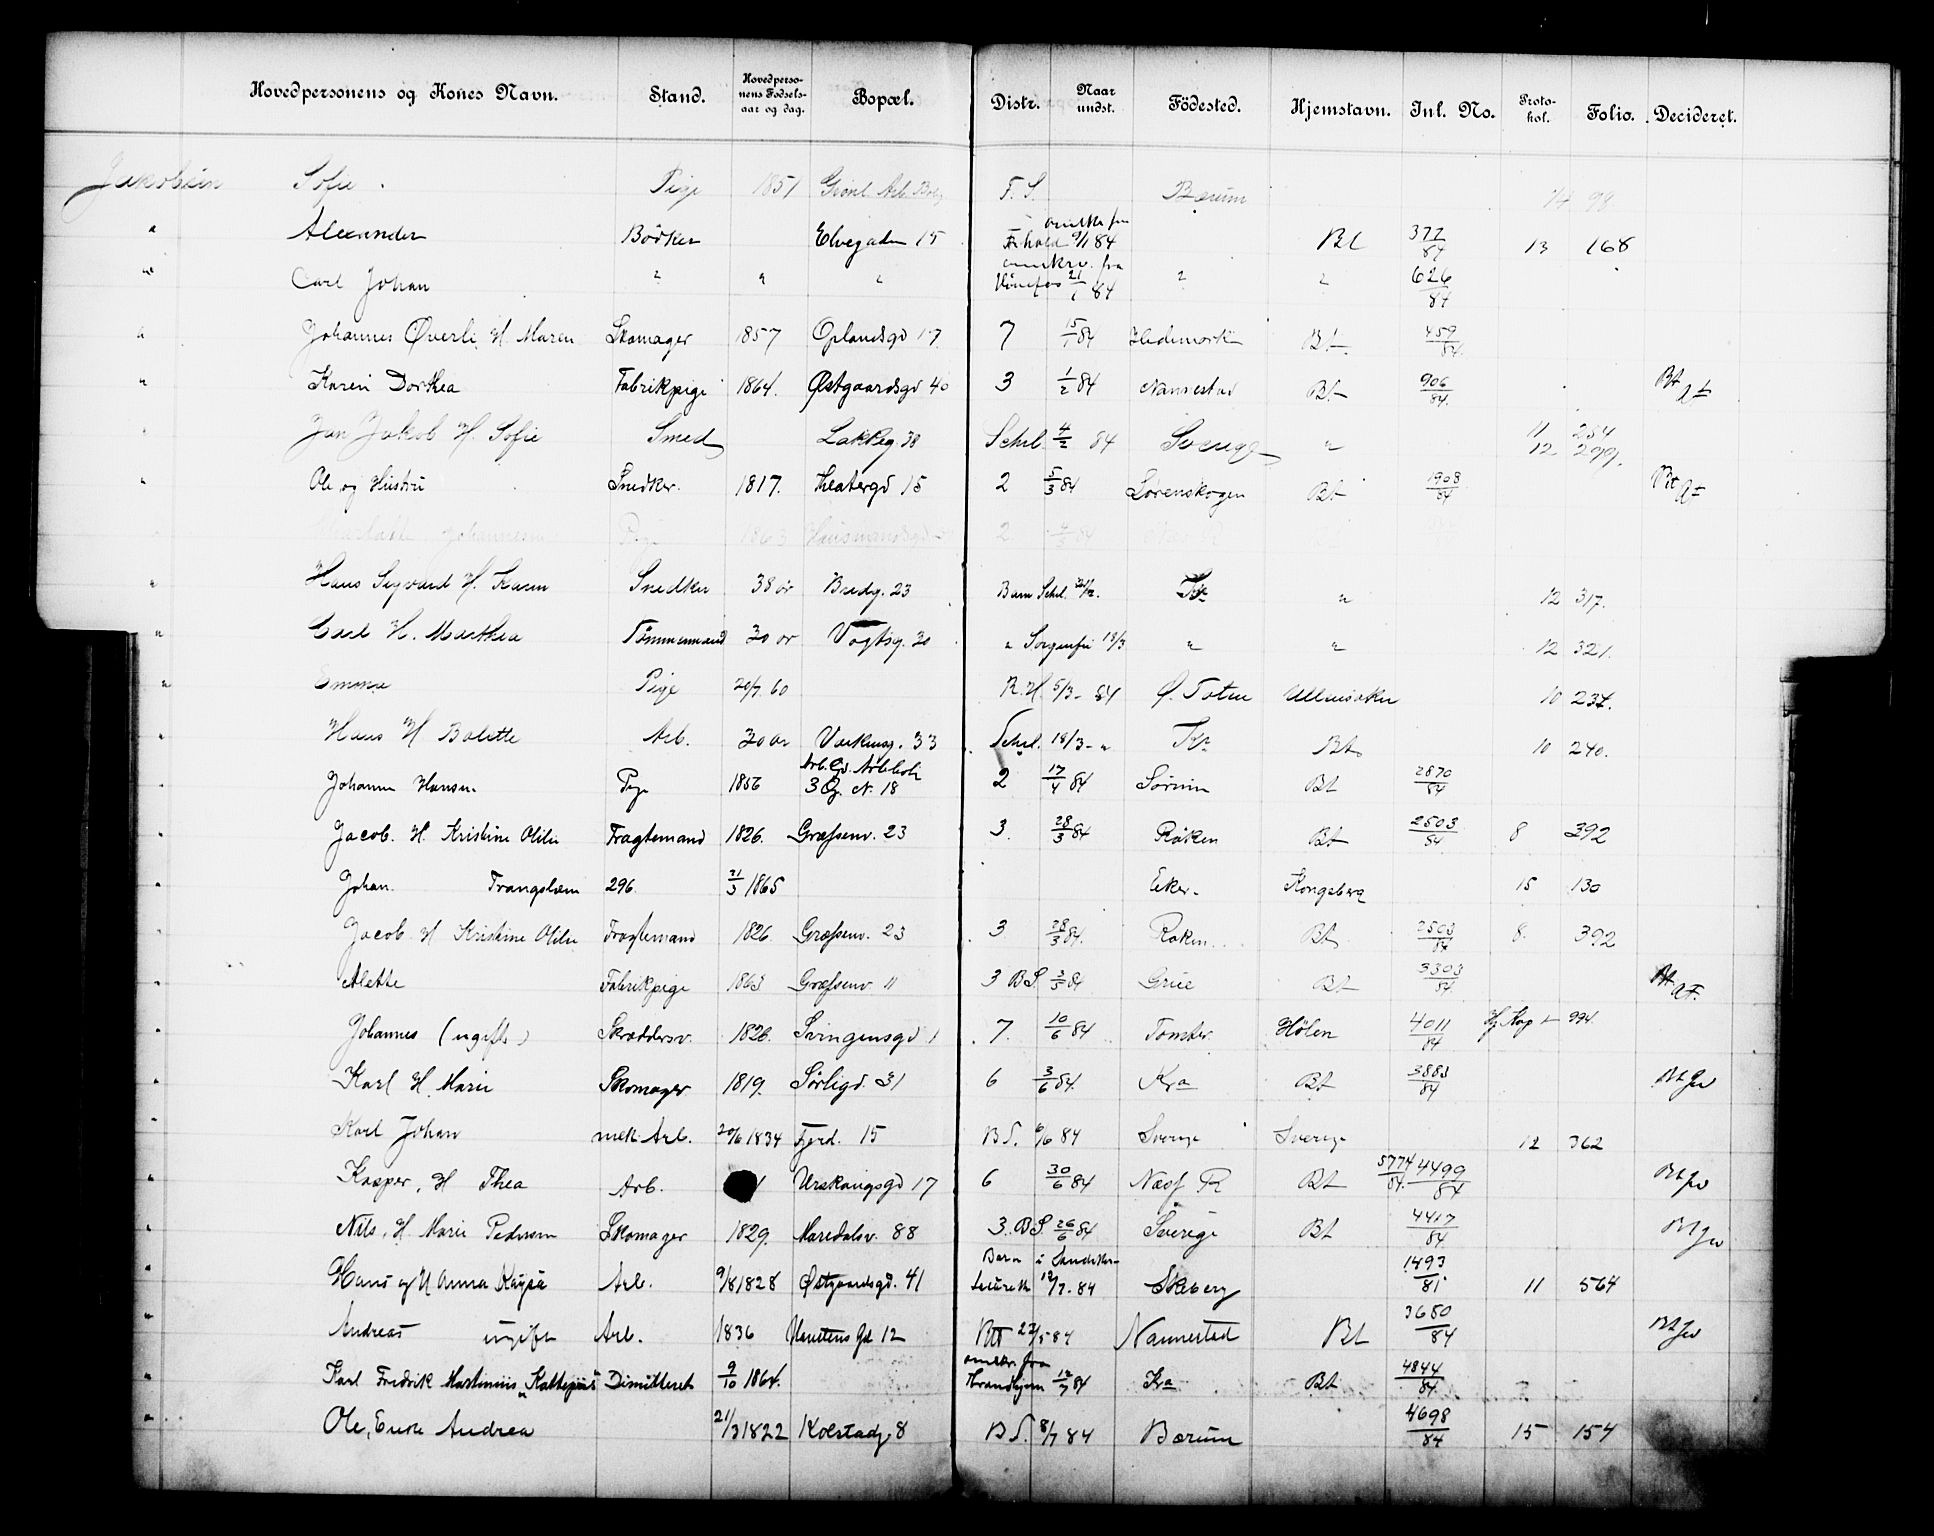 Hovedpersonens og Kones Navn. Stand. Hovedpersonens Fødselsaar og dag. Bopæl. Distr. Naar undst. Födested. Hjemstavn. Inl. No. Protokol. Folio. Decideret.
Jakobsen Sofie. Pige 1851 Grønl. Arb. Bolig F. S. Bærum 14 98.
" Alexander Bödker Elvegaden 15 omskr. fra 9/1 84 Bt 377/84 13 168
" Carl Johan " " " omskr. fra Hönefos 21/1 84 " " 626/84
" Johannes Øverli, H. Maren Skomager 1857 Oplandsgd 17 7 15/1 84 Hedemarken Bt 459/84.
" Karen Dorthea Fabrikpige 1864. Østgaardsgd 40 3 1/2 84 Nannestad Bt 906/84. Bt
" Jan Jakob H. Sofie Smed Lakkeg. 38 Schul. 4/2 84 Sverige " 11 254 12 299.
" Ole og Hustru Snedker. 1817. Theatergd 15 2 5/3 84 Lörenskogen Bt 1908/84 Bt
Johannesen Pige 1863 Hausmandsgd 2 4/3 84
" Hans Sigvard H. Karen Snedker 38 år Bredg. 23 Barn Schul. Kr. " 12 317.
" Carl H. Marthea Tömmermand 30 år Vogtsg. 30 " Sorgenfri 18/3 " " 12 321.
" Emma Pige 20/7. 60 R. H. 5/3 - 84 Ø. Toten Ullensaker 10 237.
Hans H Bolette Arb. 30 år 33 Schul. 18/3 - " Kr. Bt 10 240.
Johanne Hansen Pige 1856 3 Og. N. 18 2 17/4 84 Sörum Bt 2870/84
" Jacob. H. Kristine Olilie Fragtemand 1826. Græfsenv. 23 3. 28/3 84 Röken Bt 2503/84 8 392
" Johan. Trangslem 296. 21/3 1865 Eker. Kongsberg 15 130
" Jacob H Kristine Olilie Fragtemand 1826. Græfsenv. 23 3 28/3 84. Röken. Bt 2503/84 8. 392
" Alette Fabrikpige 1863 Græfsenv 11 3 BS. 3/5 84 Grue Bt 3303/84. Bt
" Johannes (ugift) Skræddersv. 1826. Svingensgd 1 7. 10/6 84 Tomter Hölen 4011/84 994.
" Karl H. Marie Skomager 1819. Sörligd. 31 6 3/6 84. Kra Bt 3883/84 Bt
" Karl Johan mek. Arb. 20/6 1834 Fjerd. 15 B S. 6/6 84 Sverige Sverige 12 362
" Kasper, H Thea Arb. 1 Urskougsgd 17 6 30/6 84 Næs R Bt 5774/84. 4499/84 Bt
" Nils, H. Marie Pedersen Skomager 1829. Maridalsv. 88 3. BS. 26/6 84 Sverige Bt 4417/84 Bt
" Hans og H Anna Kajsa Arb. 9/8 1828 Østgaardsgd. 41 Barn i 12/7. 84 Skeberg 1493/81 11 564
" Andreas ugift Arb. 1836 12 22/5 84 Nannestad Bt 3680/84 Bt
" Karl Fredrik Martinius Dimitteret 9/10 1864. omskr. fra Throndhjem 12/7 84 Kra Bt 4844/84
" Ole, Enke Andrea 21/3 1822 Kolstadg. 8 B S. 8/7 84 Bærum 4698/84 15 154